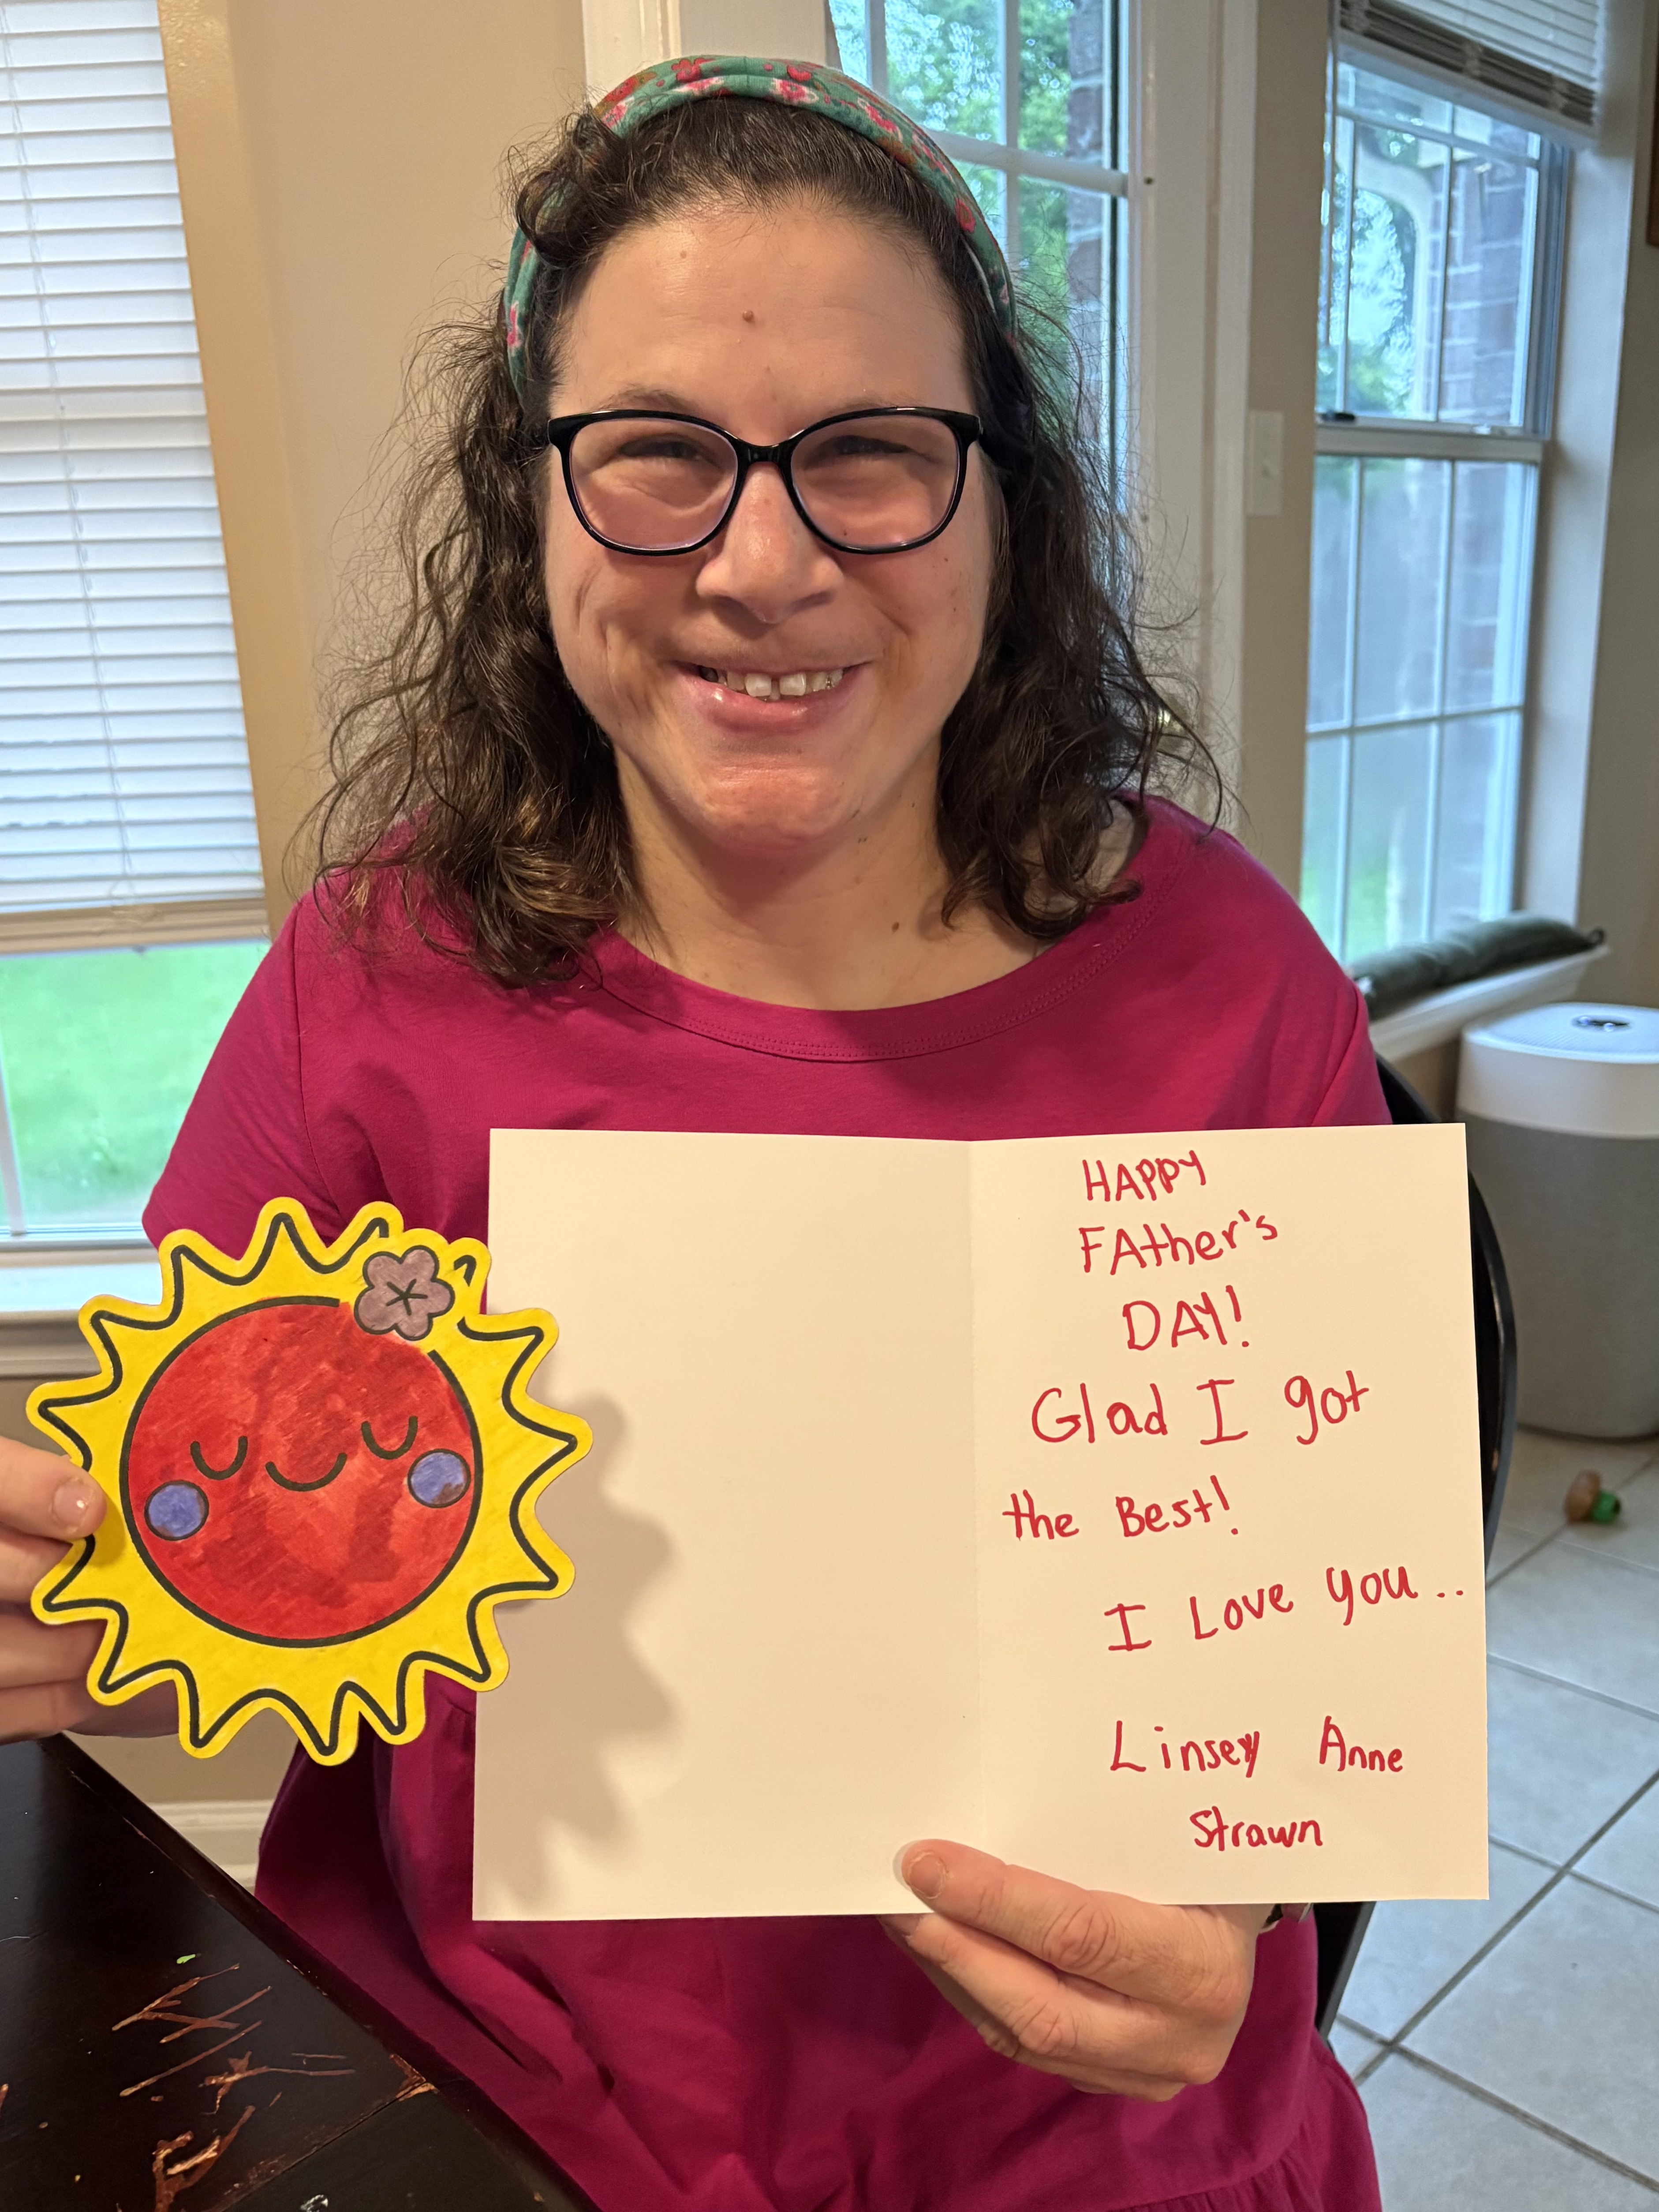 HAPPY
FAther's
DAY!
Glad I got
the Best!
I Love you..
Linsey Anne
Strawn